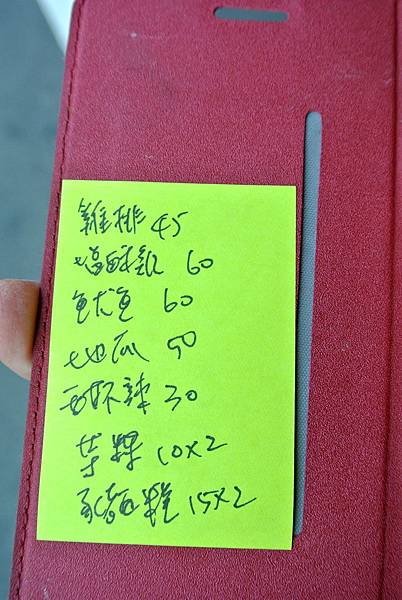 雞排 45
塩酥雞 60
魷魚 60
地瓜 50
甜不辣 30
芋粿 10x2
15x2